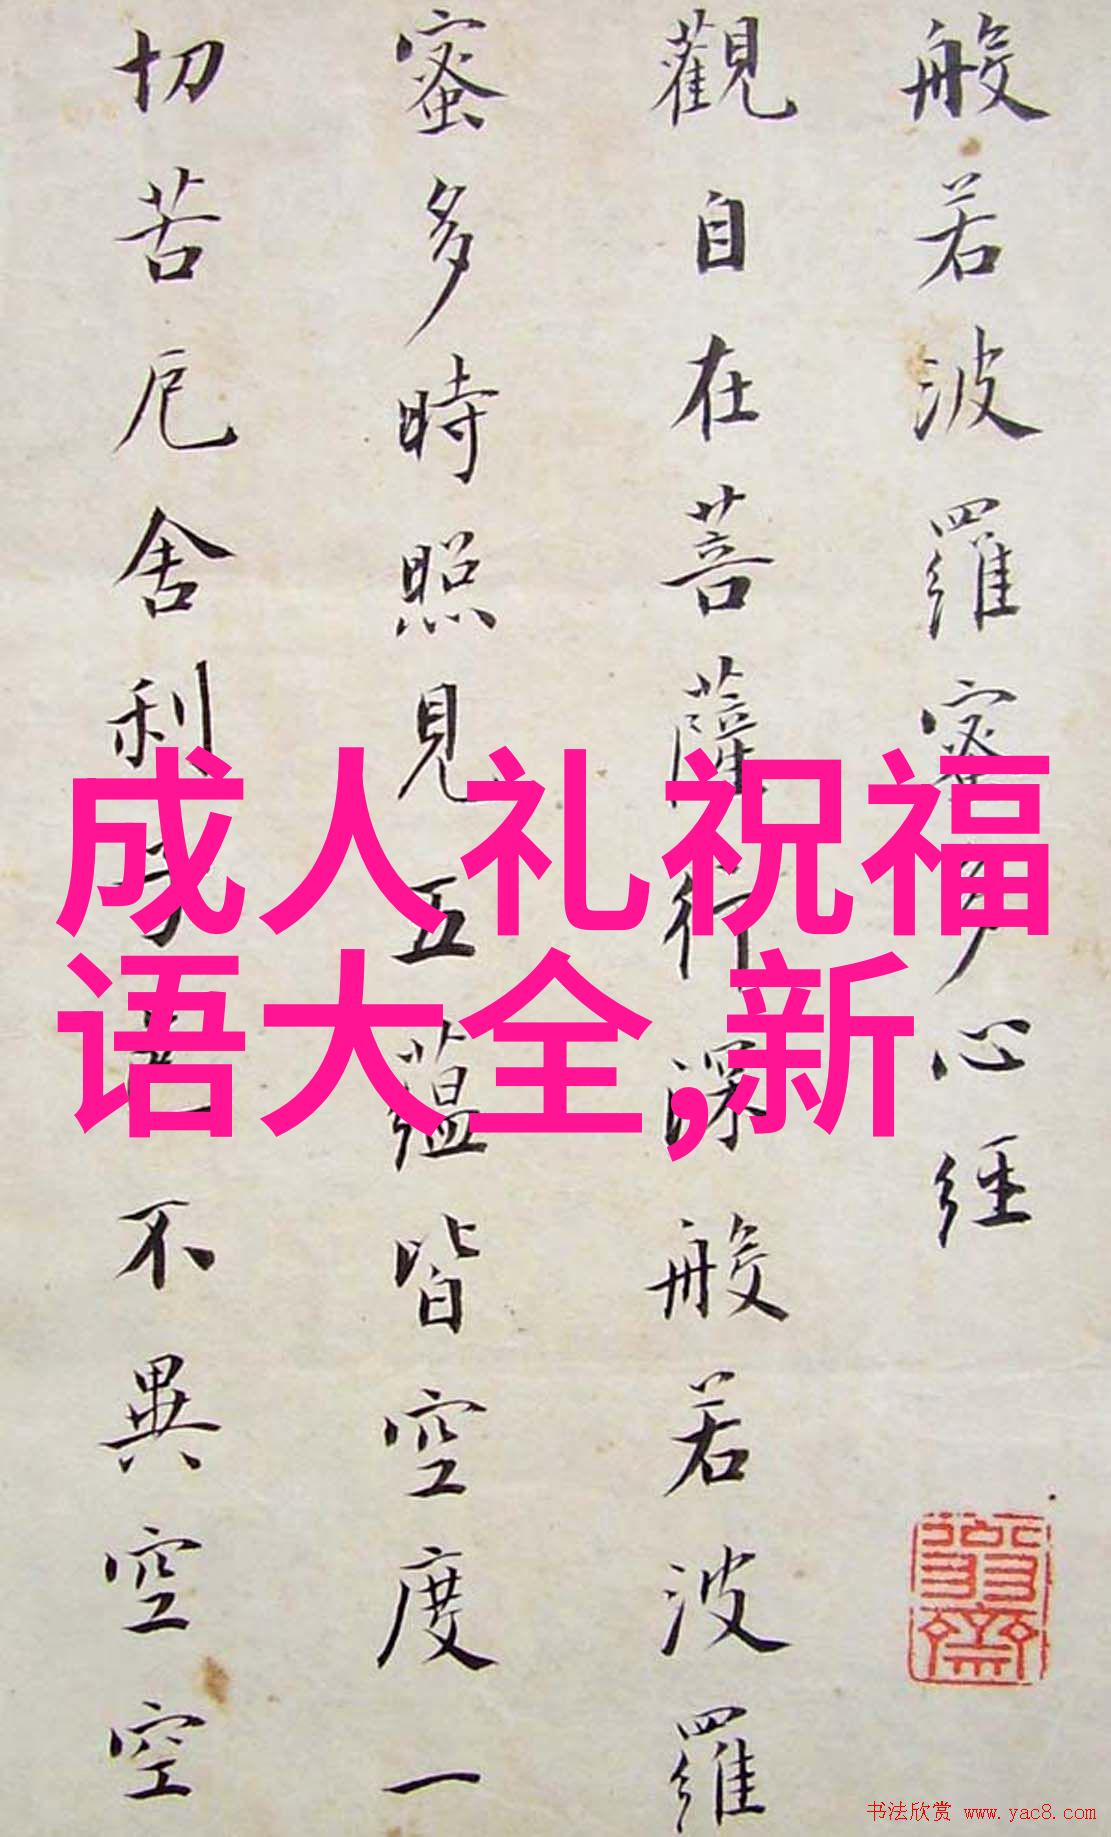 般若波羅蜜多心経
觀自在菩薩行深般若波羅
蜜多時照見五蘊皆空度一
切苦厄舍利子色不異空空
成人礼祝福
语大全,新
书法欣赏 www.yac8.com